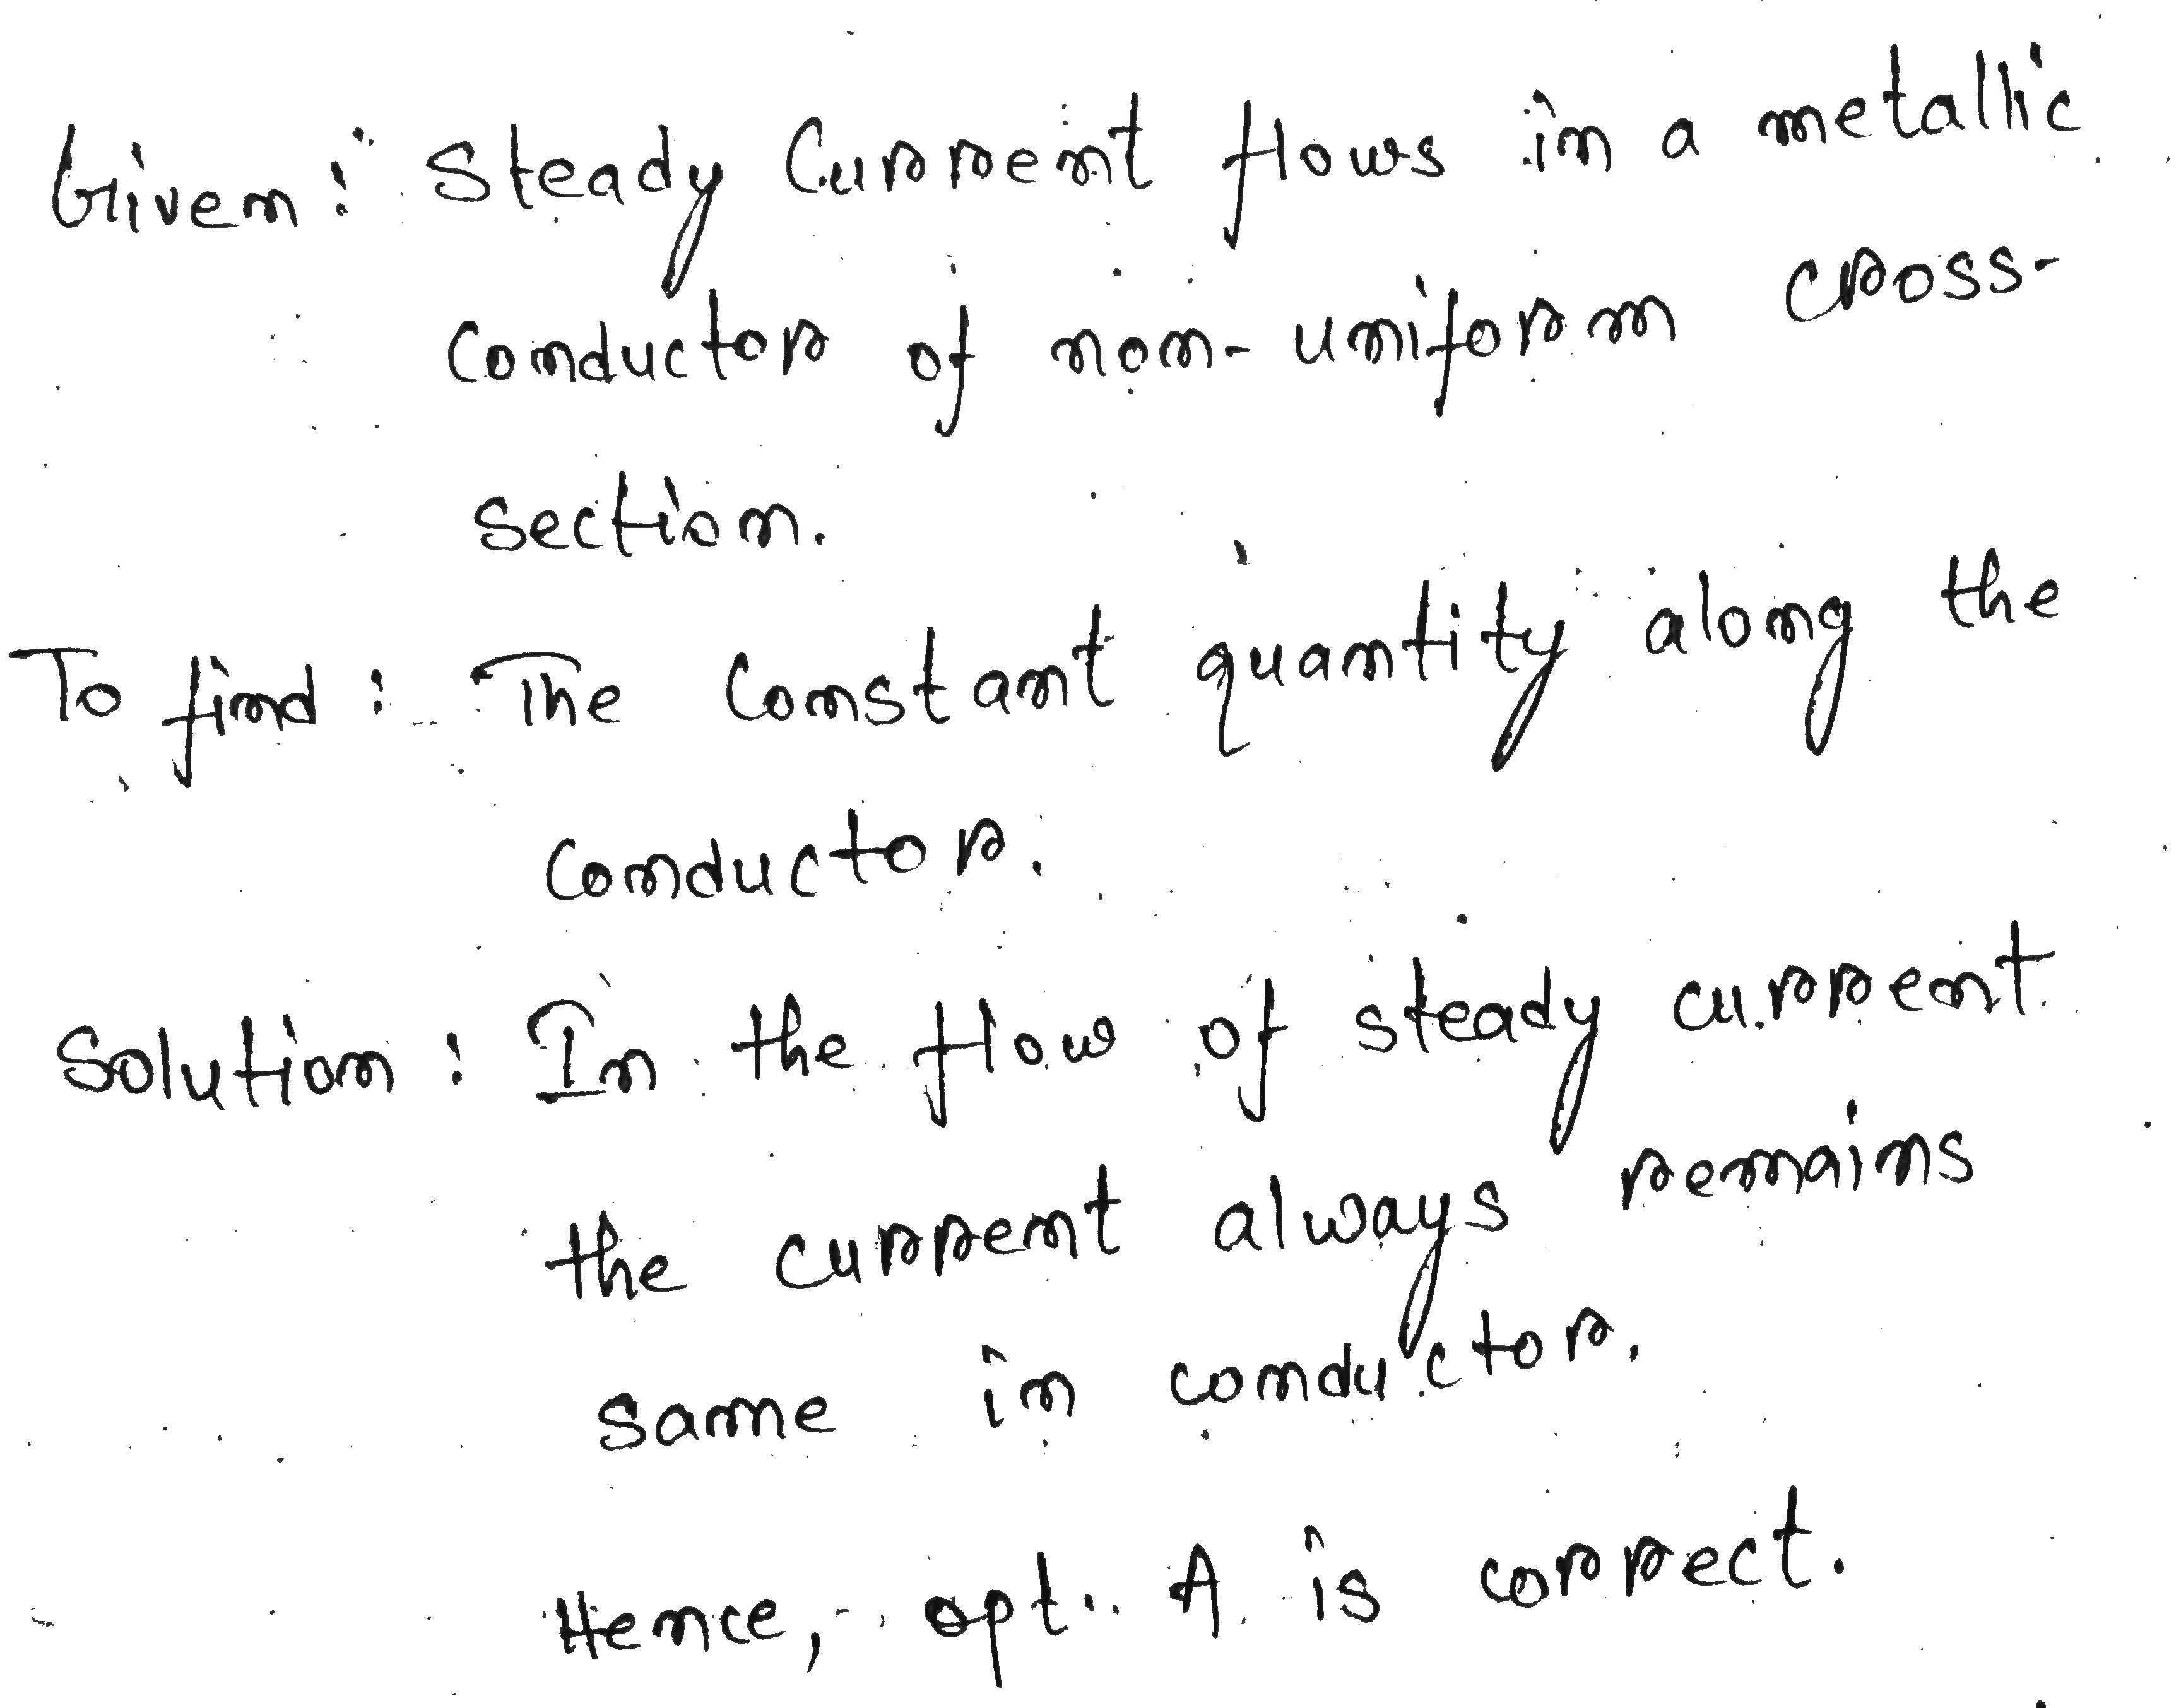 Given: Steady Current flows in a metallic
conductor of non-uniform cross-
section.
To find: The constant quantity along the
conductor.
Solution: In the flow of steady current
the current always remains
same in conductor.
Hence, opt. A is correct.